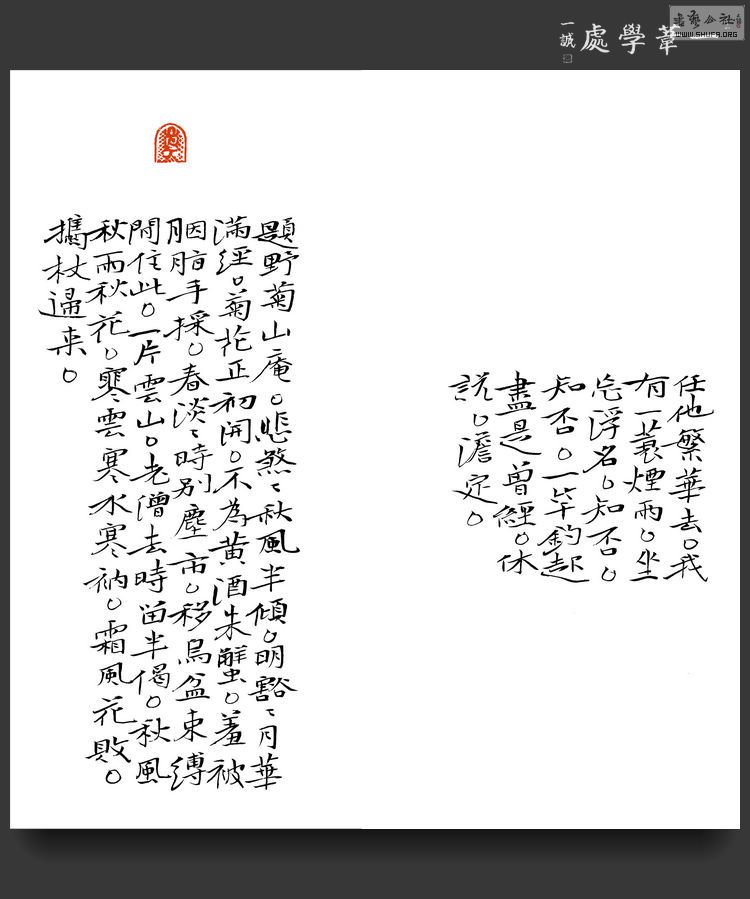 書藝公社
WWW.SHUFA.ORG
一葦學處
一誠
任他繁華去。我
有一蓑煙雨。坐
忘浮名。知否。
知否。一竿釣起
盡是曾經。休
說。澹定。
題野菊山庵。悲煞〻秋風半傾。明豁〻月華
滿徑。菊花正初開。不為黃酒朱蟹。羞被
胭脂手採。春淡〻時別塵市。移烏盆束縛
閒住此。一片雲山。老僧去時留半偈。秋風
秋雨秋花。寒雲寒水寒衲。霜風花敗。
攜杖歸来。